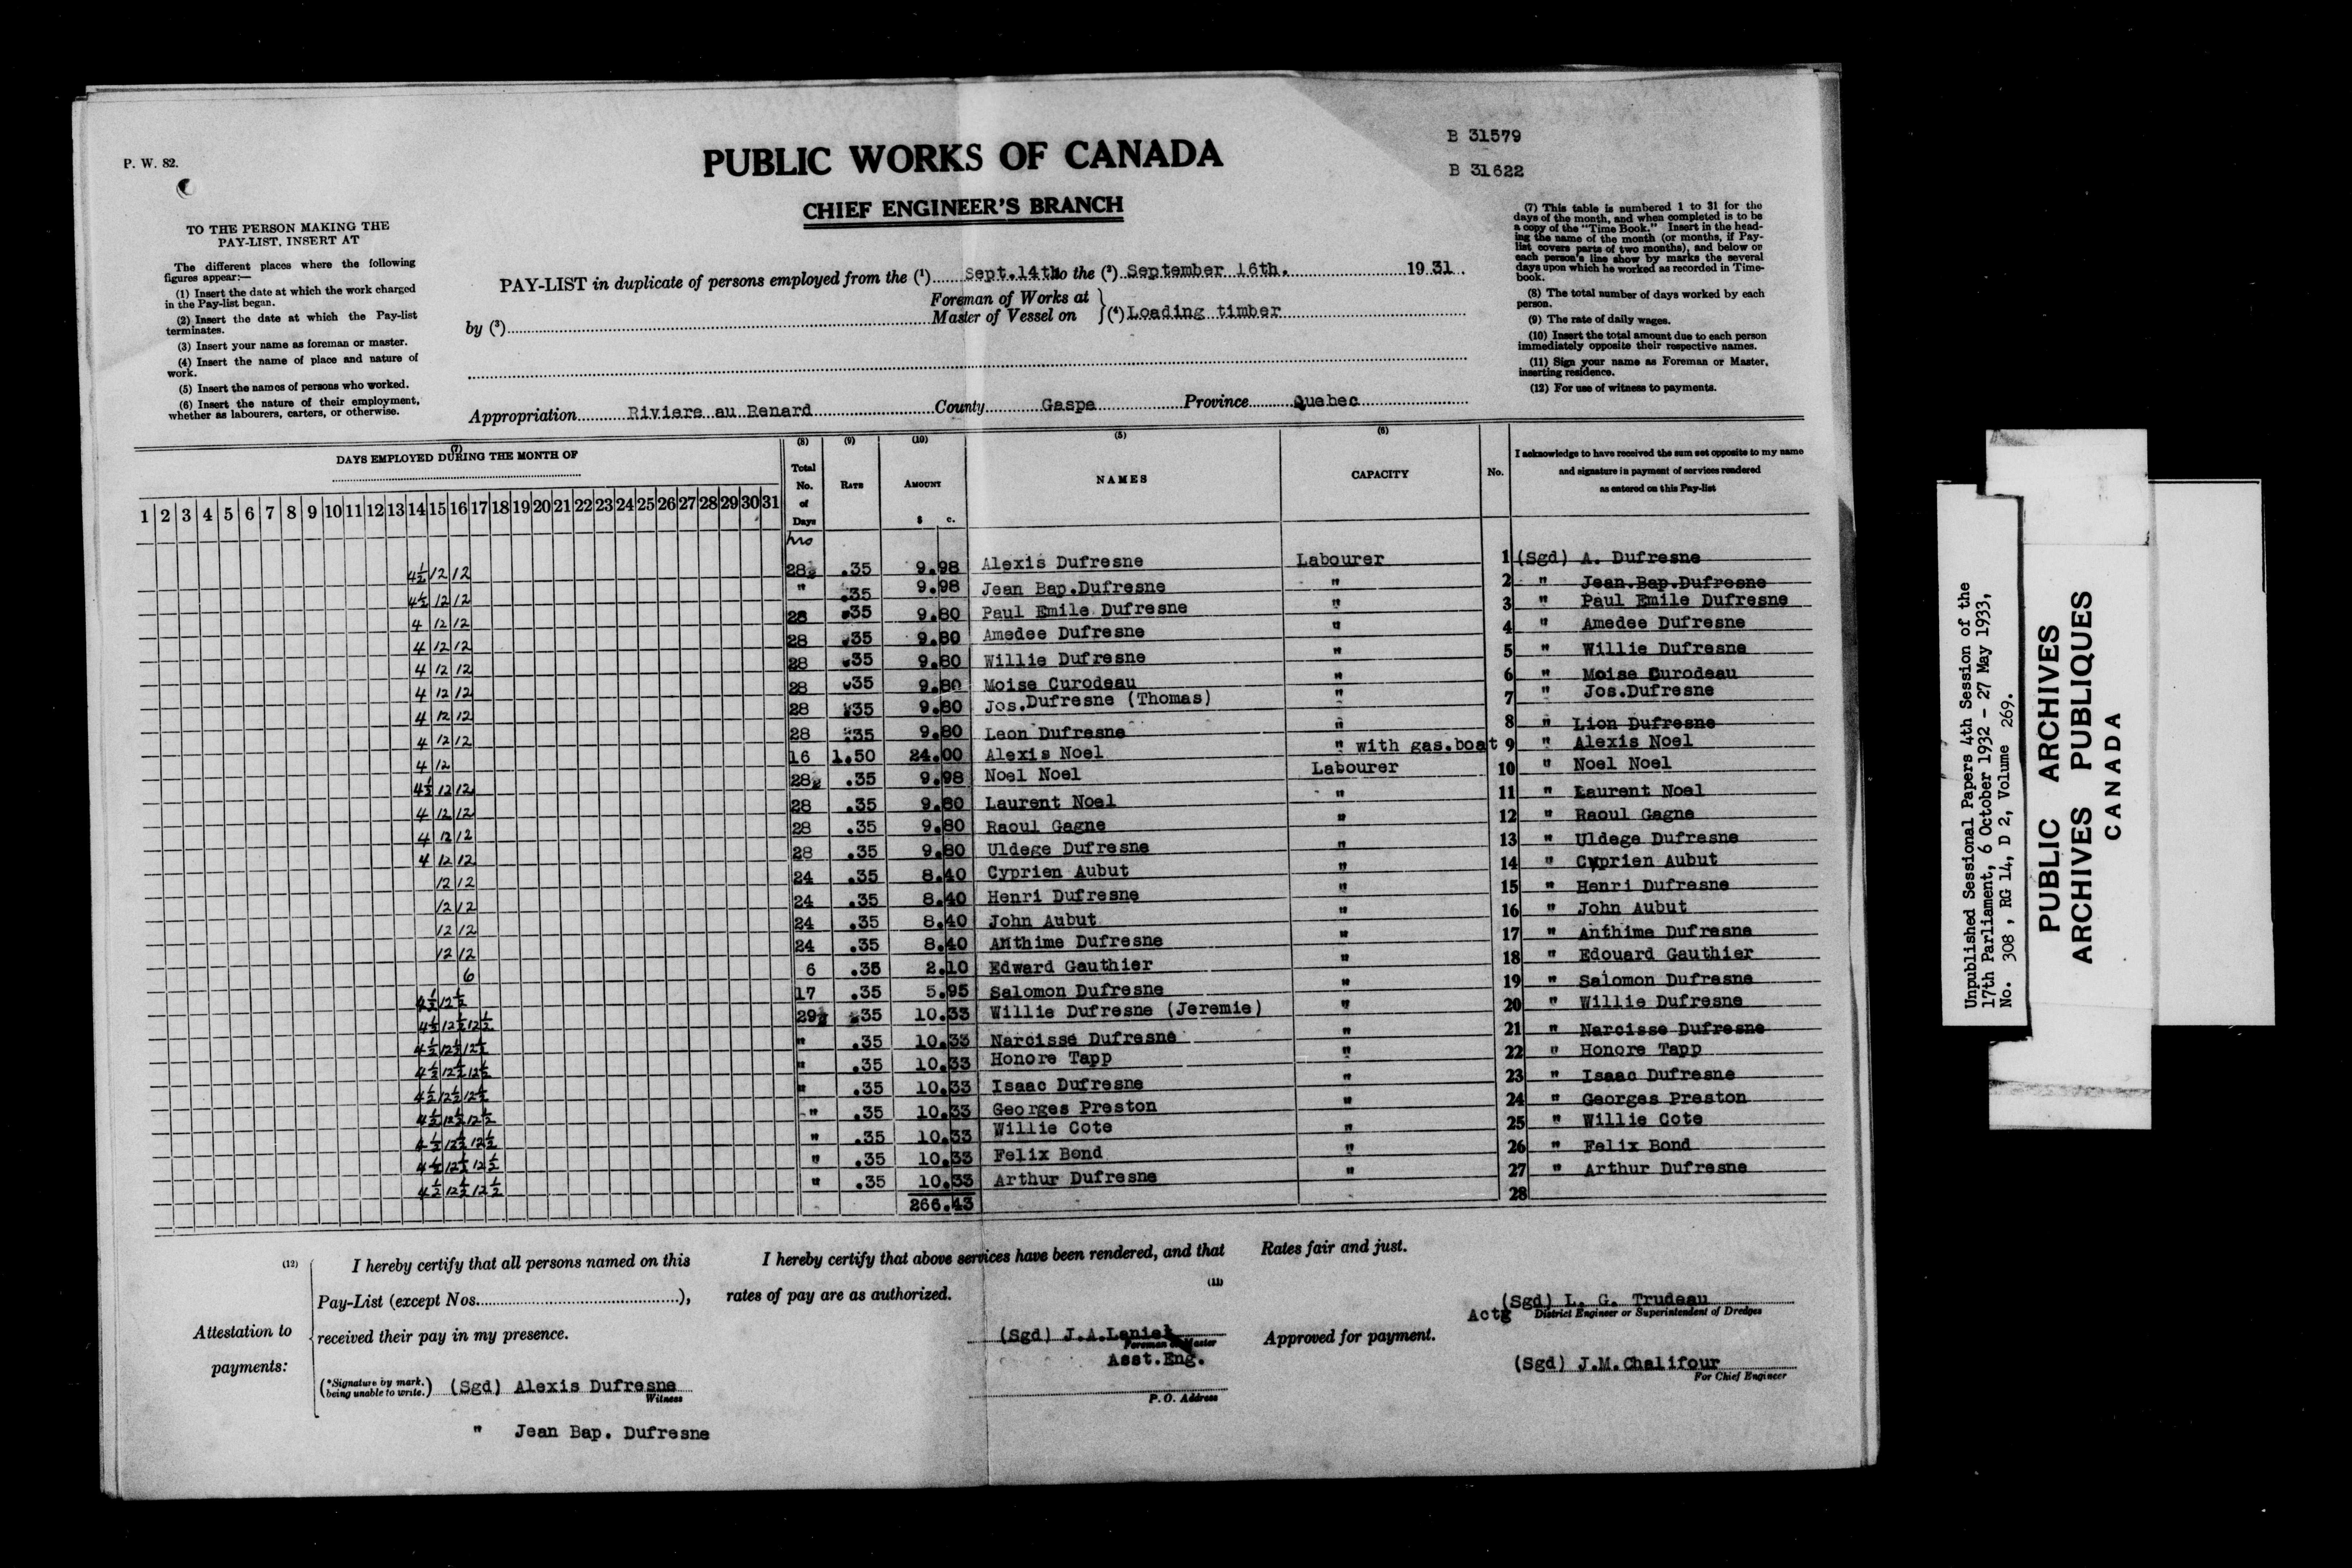 P. W. 82.
PUBLIC WORKS OF CANADA
CHIEF ENGINEER'S BRANCH
B 31579
B 31622
TO THE PERSON MAKING THE
PAY-LIST, INSERT AT
The different places where the following
figures appear:—
(1) Insert the date at which the work charged
in the Pay-list began.
(2) Insert the date at which the Pay-list
terminates.
(3) Insert your name as foreman or master.
(4) Insert the name of place and nature of
work.
(5) Insert the names of persons who worked.
(6) Insert the nature of their employment,
whether as labourers, carters, or otherwise.
PAY-LIST in duplicate of persons employed from the (1) Sept.14th to the (2) September 16th. 1931.
by (3) Foreman of Works at
Master of Vessel on } (4) Loading timber
Appropriation Riviere au Renard County Gaspe Province Quebec
(7) This table is numbered 1 to 31 for the
days of the month, and when completed is to be
a copy of the "Time Book." Insert in the head-
ing the name of the month (or months, if Pay-
list covers parts of two months), and below or
each person's line show by marks the several
days upon which he worked as recorded in Time-
book.
(8) The total number of days worked by each
person.
(9) The rate of daily wages.
(10) Insert the total amount due to each person
immediately opposite their respective names.
(11) Sign your name as Foreman or Master,
inserting residence.
(12) For use of witness to payments.
(7) DAYS EMPLOYED DURING THE MONTH OF
(8) Total No. of Days (9) RATE (10) AMOUNT $ c. (5) NAMES (6) CAPACITY No. I acknowledge to have received the sum set opposite to my name
and signature in payment of services rendered
as entered on this Pay-list
1 2 3 4 5 6 7 8 9 10 11 12 13 14 15 16 17 18 19 20 21 22 23 24 25 26 27 28 29 30 31
hrs
4½ 12 12 28½ .35 9.98 Alexis Dufresne Labourer 1 (Sgd) A. Dufresne
4½ 12 12 " .35 9.98 Jean Bap.Dufresne " 2 " Jean.Bap.Dufresne
4 12 12 28 .35 9.80 Paul Emile Dufresne " 3 " Paul Emile Dufresne
4 12 12 28 .35 9.80 Amedee Dufresne " 4 " Amedee Dufresne
4 12 12 28 .35 9.80 Willie Dufresne " 5 " Willie Dufresne
4 12 12 28 .35 9.80 Moise Curodeau " 6 " Moise Curodeau
4 12 12 28 .35 9.80 Jos.Dufresne (Thomas) " 7 " Jos.Dufresne
4 12 12 28 .35 9.80 Leon Dufresne " 8 " Lion Dufresne
4 12 16 1.50 24.00 Alexis Noel " with gas.boat 9 " Alexis Noel
4½ 12 12 28½ .35 9.98 Noel Noel Labourer 10 " Noel Noel
4 12 12 28 .35 9.80 Laurent Noel " 11 " Laurent Noel
4 12 12 28 .35 9.80 Raoul Gagne " 12 " Raoul Gagne
4 12 12 28 .35 9.80 Uldege Dufresne " 13 " Uldege Dufresne
12 12 24 .35 8.40 Cyprien Aubut " 14 " Cyprien Aubut
12 12 24 .35 8.40 Henri Dufresne " 15 " Henri Dufresne
12 12 24 .35 8.40 John Aubut " 16 " John Aubut
12 12 24 .35 8.40 Anthime Dufresne " 17 " Anthime Dufresne
6 6 .35 2.10 Edward Gauthier " 18 " Edouard Gauthier
4½ 12½ 17 .35 5.95 Salomon Dufresne " 19 " Salomon Dufresne
4½ 12½ 12½ 29½ .35 10.33 Willie Dufresne (Jeremie) " 20 " Willie Dufresne
4½ 12½ 12½ " .35 10.33 Narcisse Dufresne " 21 " Narcisse Dufresne
4½ 12½ 12½ " .35 10.33 Honore Tapp " 22 " Honore Tapp
4½ 12½ 12½ " .35 10.33 Isaac Dufresne " 23 " Isaac Dufresne
4½ 12½ 12½ " .35 10.33 Georges Preston " 24 " Georges Preston
4½ 12½ 12½ " .35 10.33 Willie Cote " 25 " Willie Cote
4½ 12½ 12½ " .35 10.33 Felix Bond " 26 " Felix Bond
4½ 12½ 12½ " .35 10.33 Arthur Dufresne " 27 " Arthur Dufresne
266.43 28
(12) Attestation to
payments:
I hereby certify that all persons named on this
Pay-List (except Nos. ),
received their pay in my presence.
(*Signature by mark.
being unable to write.) (Sgd) Alexis Dufresne
Witness
" Jean Bap. Dufresne
I hereby certify that above services have been rendered, and that
rates of pay are as authorized.
(11)
(Sgd) J.A.Laniel
Foreman or Master
Asst.Eng.
P.O. Address
Rates fair and just.
(Sgd) L. G. Trudeau
Actg District Engineer or Superintendent of Dredges
Approved for payment.
(Sgd) J.M.Chalifour
For Chief Engineer
Unpublished Sessional Papers 4th Session of the
17th Parliament, 6 October 1932 - 27 May 1933,
No. 308, RG 14, D 2, Volume 269.
PUBLIC ARCHIVES
ARCHIVES PUBLIQUES
CANADA